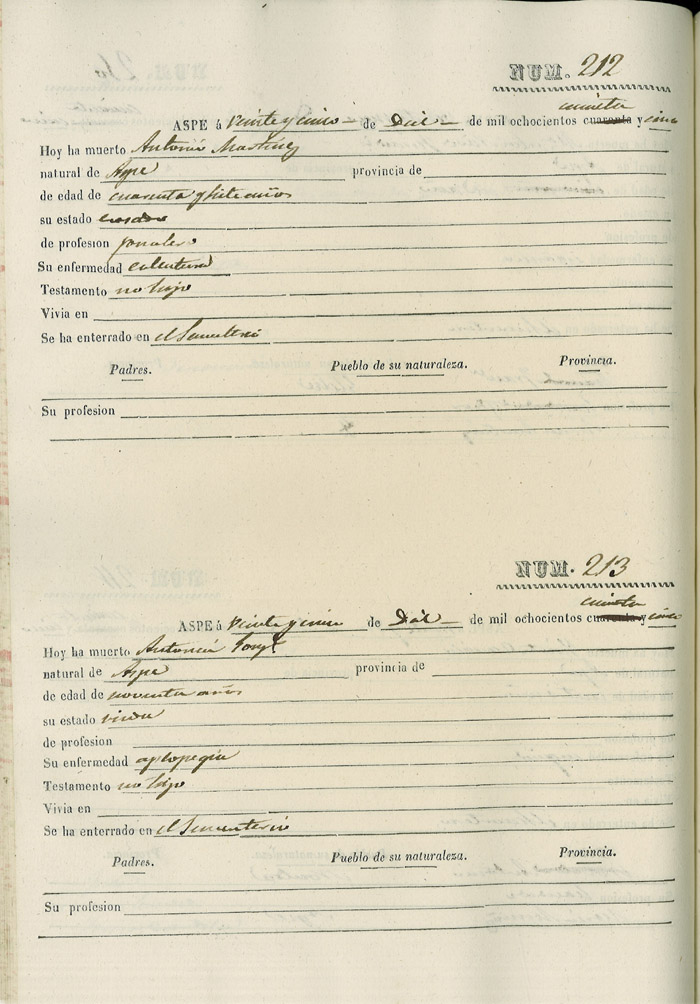 NUM. 212
cincuenta
ASPE á Veinte y cinco de Dbl. de mil ochocientos cuarenta y cinco
Hoy ha muerto Antonio Martinez
natural de Aspe provincia de
de edad de cuarenta y siete años
su estado casado
de profesion jornalero
Su enfermedad calentura
Testamento no hizo
Vivia en
Se ha enterrado en el Sementerio
Padres. Pueblo de su naturaleza. Provincia.
Su profesion
NUM. 213
ASPE á Veinte y cinco de de mil ochocientos cuarenta y cinco
Hoy ha muerto Antonia
natural de Aspe provincia de
de edad de noventa años
su estado viuda
de profesion
Su enfermedad
Testamento no hizo
Vivia en
Se ha enterrado en el Sementerio
Padres. Pueblo de su naturaleza. Provincia.
Su profesion